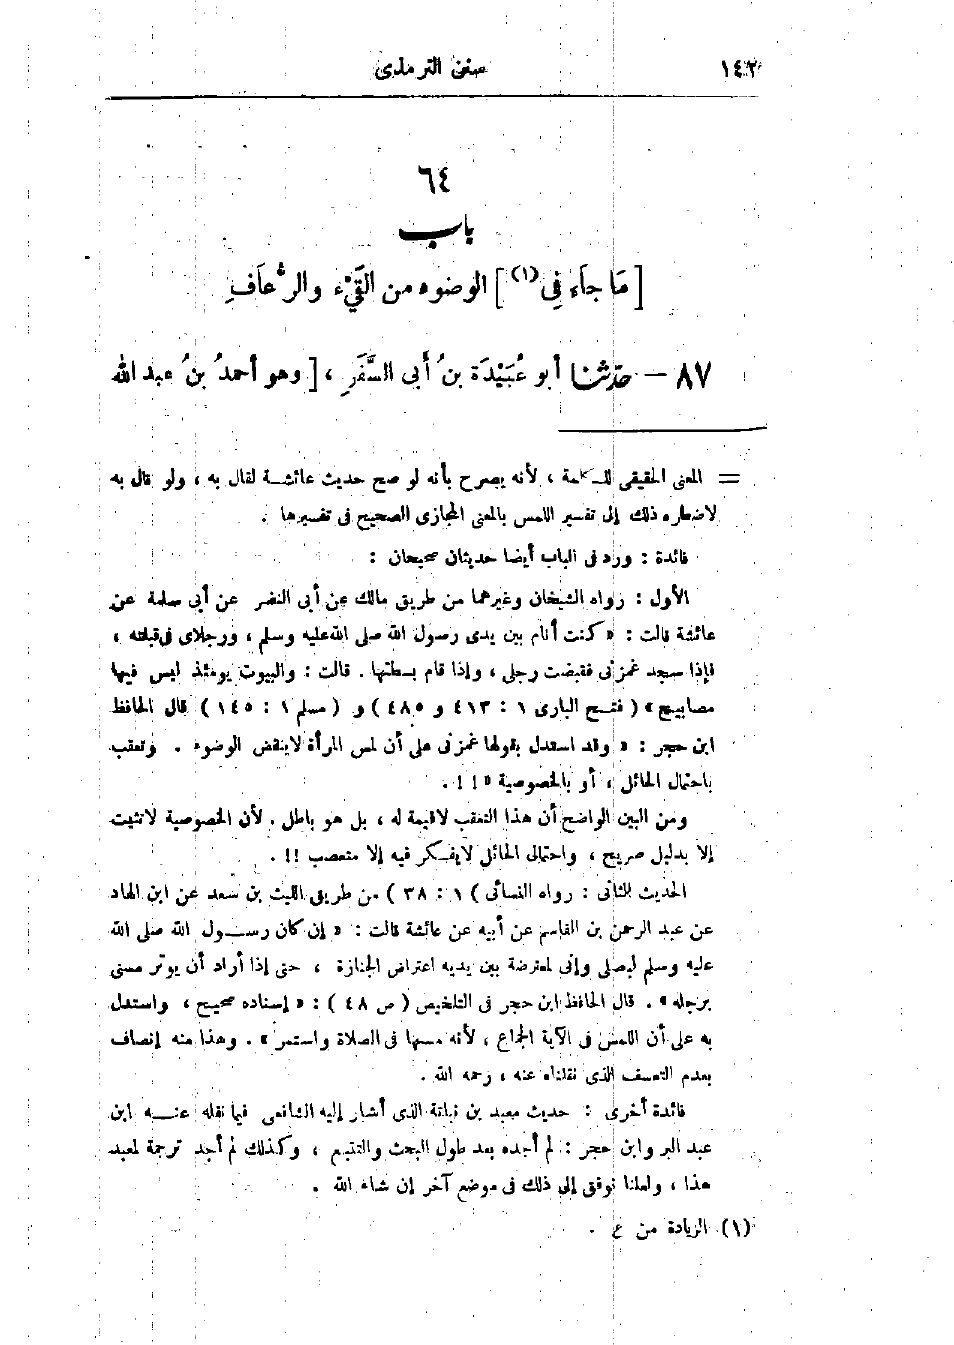 ١٤٢ سنن الترمذى
٦٤
باب
[ مَا جاَء فِى(١) ] الوضوء من القَيْء والرُّعاَفِ
٨٧ — حدّثنا أبو عُبَيْدَة بنُ أبى السَّفَرِ ، [ وهو أحمدُ بنُ عبد الله
= المعنى الحقيقى للـكلمة ، لأنه يصرح بأنه لو صح حديث عائشـة لقال به ، ولو قال به
لاضطره ذلك إلى تفسير اللمس بالمعنى المجازى الصحيح فى تفسيرها .
فائدة : ورد فى الباب أيضا حديثان صحيحان :
الأول : رواه الشيخان وغيرهما من طريق مالك عن أبى النضر عن أبى سلمة عن
عائشة قالت : « كنت أنام بين يدى رسول الله صلى الله عليه وسلم ، ورجلاى فى قبلته ،
فإذا سجد غمزنى فقبضت رجلى ، وإذا قام بسطتها . قالت : والبيوت يومئذ ليس فيها
مصابيح » ( فتـح البارى ١ : ٤١٣ و ٤٨٥ ) و ( مسلم ١ : ١٤٥ ) قال الحافظ
ابن حجر : « وقد استدل بقولها غمزنى على أن لمس المرأة لاينقض الوضوء . وتعقب
باحتمال الحائل ، أو بالخصوصية » ! ! .
ومن البين الواضح أن هذا التعقب لاقيمة له ، بل هو باطل . لأن الخصوصية لاتثبت
إلا بدليل صريح ، واحتمالى الحائل لايفـكر فيه إلا متعصب !! .
الحديث الثانى : رواه النسائى ) ١ : ٣٨ ) من طريق الليث بن سعد عن ابن الهاد
عن عبد الرحمن بن القاسم عن أبيه عن عائشة قالت : « إن كان رسـول الله صلى الله
عليه وسلم ليصلى وإنى لمعترضة بين يديه اعتراض الجنازة ، حتى إذا أراد أن يوتر مسنى
برجله » . قال الحافظ ابن حجر فى التلخيص ( ص ٤٨ ) : « إسناده صحيح ، واستدل
به على أن اللمس فى الآية الجماع ، لأنه مسها فى الصلاة واستمر » . وهذا منه إنصاف
بعدم التعسف الذى نقلناه عنه ، رحمه الله .
فائدة أخرى : حديث معبد بن نباتة الذى أشار إليه الشافعى فيما نقله عنـه ابن
عبد البر وابن حجر : لم أجده بعد طول البحث والتتبع ، وكذلك لم أجد ترجمة لمعبد
هذا ، ولعلنا نوفق إلى ذلك فى موضع آخر إن شاء الله .
(١) الزيادة من ع .